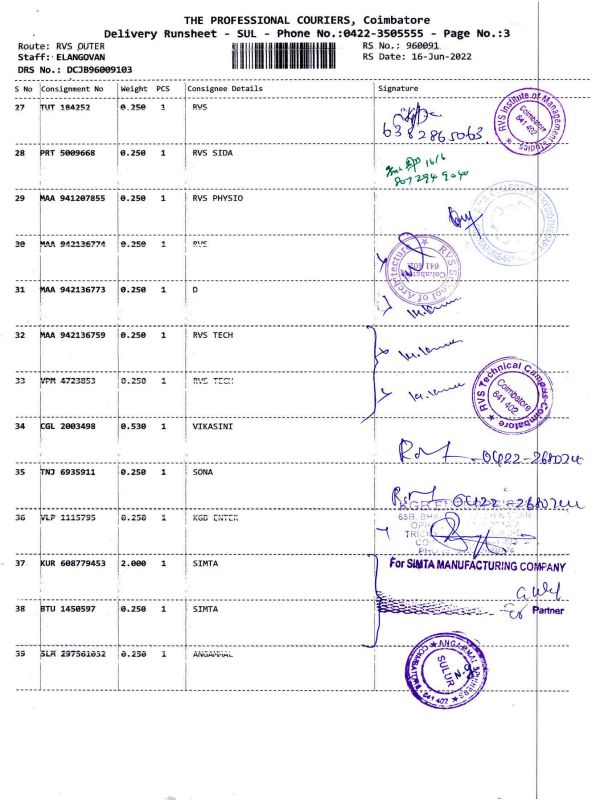 THE PROFESSIONAL COURIERS, Coimbatore
Delivery Runsheet - SUL - Phone No.:0422-3505555 - Page No.:3
Route: RVS OUTER
RS No.: 960091
Staff: ELANGOVAN
RS Date: 16-Jun-2022
DRS No.: DCJB96009103
S No Consignment No Weight PCS Consignee Details Signature
27 TUT 184252 0.250 1 RVS
RVS Institute of Management Studies Coimbatore 641 402
6382865063
28 PRT 5009668 0.250 1 RVS SIDA
16/6
29 MAA 941207855 0.250 1 RVS PHYSIO
30 MAA 942136774 0.250 1 RVS
RVS School of Architecture Coimbatore 641 402
31 MAA 942136773 0.250 1 D
32 MAA 942136759 0.250 1 RVS TECH
33 VPM 4723853 0.250 1 RVS TECH
RVS Technical Campus-Coimbatore Coimbatore 641 402
34 CGL 2003498 0.530 1 VIKASINI
35 TNJ 6935911 0.250 1 SONA
36 VLP 1115795 0.250 1 KGB ENTER
37 KUR 608779453 2.000 1 SIMTA
For SIMTA MANUFACTURING COMPANY
38 BTU 1450597 0.250 1 SIMTA
Partner
39 SLM 297561032 0.250 1 ANGAMMAL
SULUR